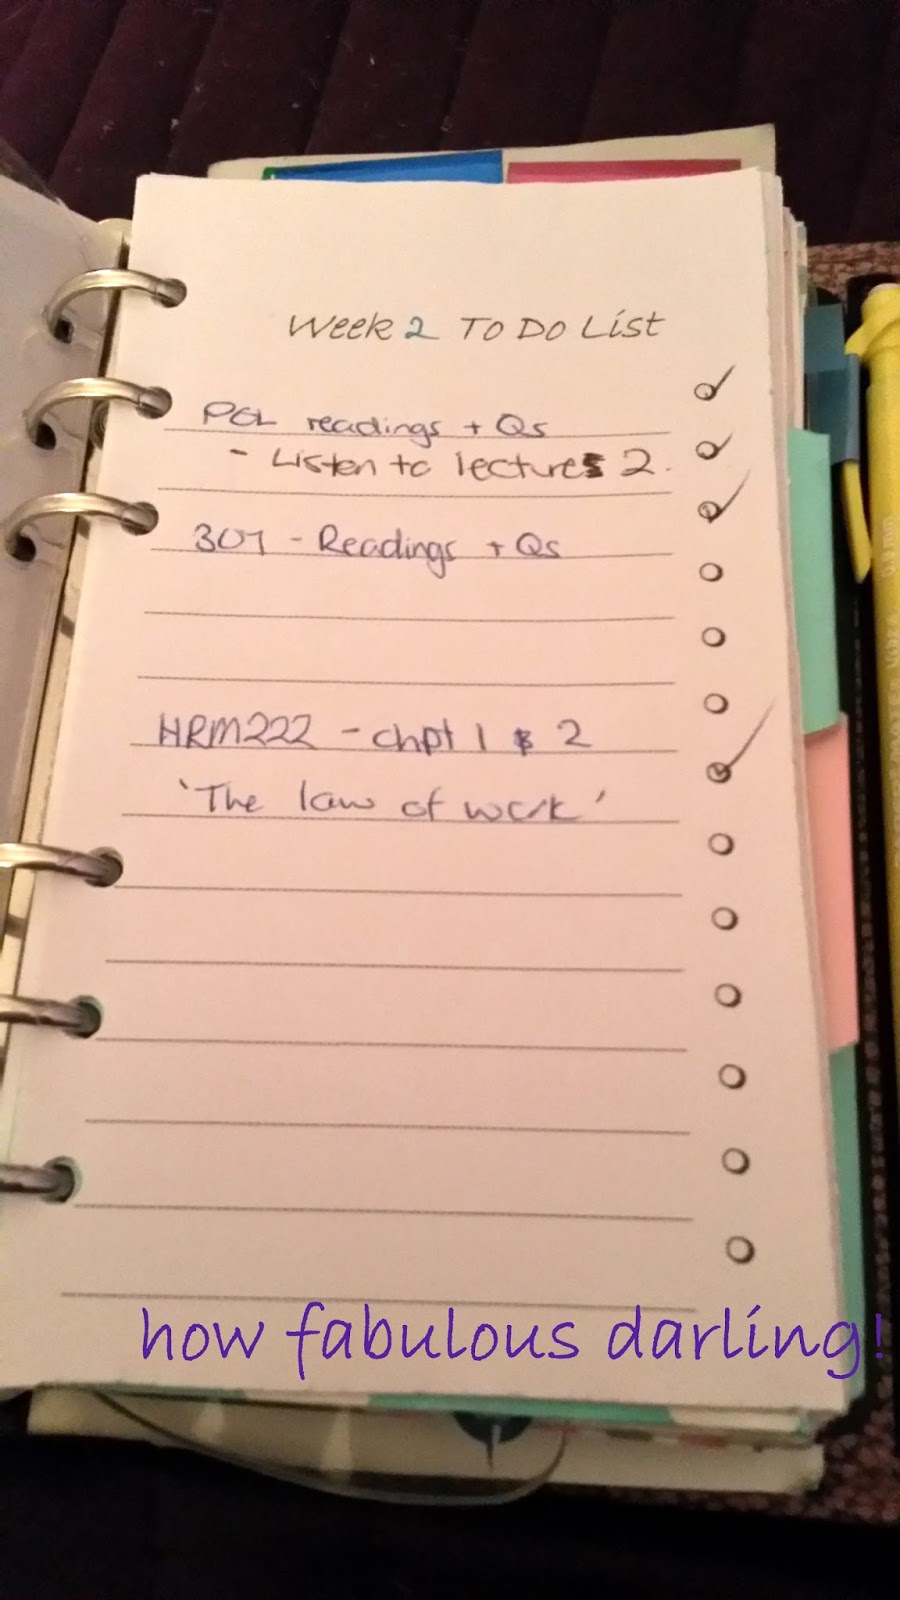 Week 2 To Do List
POL readings + Qs
- Listen to lectures 2.
301 - Readings + Qs
HRM222 - chpt 1 & 2
'The law of work'
how fabulous darling!